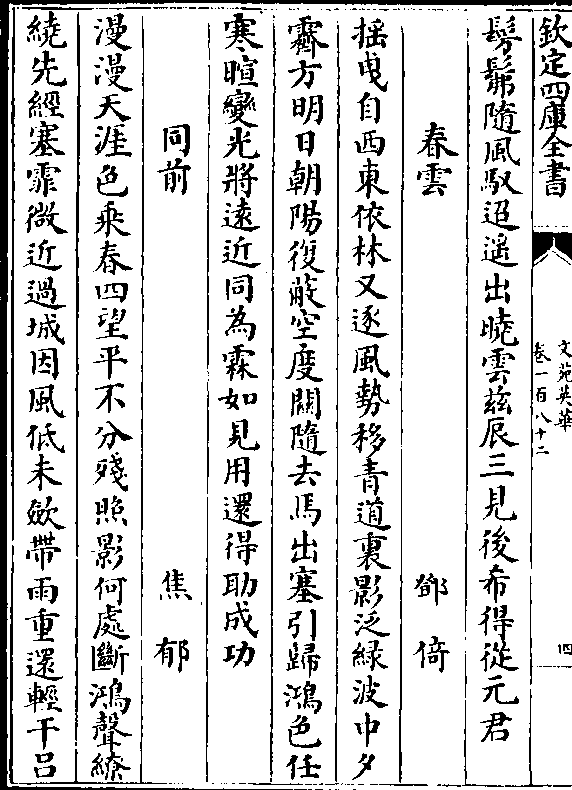 欽定四庫全書
文苑英華
卷一百八十二
四
髣髴隨風馭迢遥出曉雲兹辰三見後希得從元君
春雲 鄧倚
揺曵自西東依林又逐風勢移青道裏影泛緑波中夕
霽方明日朝陽復蔽空度關隨去馬出塞引歸鴻色任
寒暄變光將逺近同為霖如見用還得助成功
同前 焦郁
漫漫天涯色乘春四望平不分殘照影何處斷鴻聲繚
繞先經塞霏微近過城因風低未斂帶雨重還輕干吕